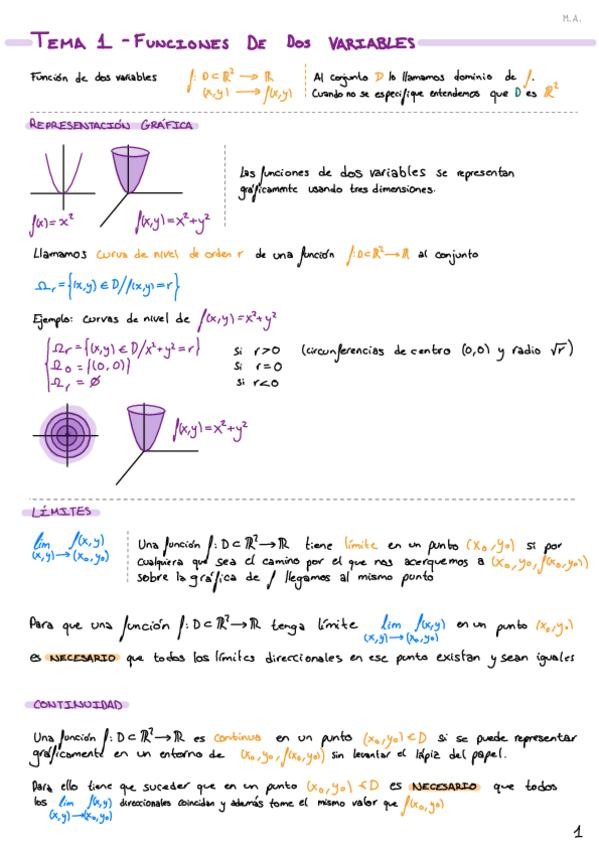 M.A.
TEMA 1 - FUNCIONES DE DOS VARIABLES
Función de dos variables f: D ⊂ ℝ² → ℝ
(x,y) → f(x,y)
Al conjunto D lo llamamos dominio de f.
Cuando no se especifique entendemos que D es ℝ²
REPRESENTACIÓN GRÁFICA
Las funciones de dos variables se representan
gráficamente usando tres dimensiones.
f(x)=x² f(x,y)=x²+y²
Llamamos curva de nivel de orden r de una función f:D⊂ℝ²→ℝ al conjunto
Ωr={(x,y) ∈ D/f(x,y)=r}
Ejemplo: curvas de nivel de f(x,y)=x²+y²
Ωr={(x,y) ∈ D/x²+y²=r} si r>0 (circunferencias de centro (0,0) y radio √r)
Ω0={(0,0)} si r=0
Ωr=∅ si r<0
f(x,y)=x²+y²
LÍMITES
lim f(x,y)
(x,y)→(x0,y0)
Una función f: D ⊂ ℝ² → ℝ tiene límite en un punto (x0,y0) si por
cualquiera que sea el camino por el que nos acerquemos a (x0,y0,f(x0,y0))
sobre la gráfica de f llegamos al mismo punto
Para que una función f: D ⊂ ℝ² → ℝ tenga límite lim f(x,y) en un punto (x0,y0)
(x,y)→(x0,y0)
es NECESARIO que todos los límites direccionales en ese punto existan y sean iguales
CONTINUIDAD
Una función f: D ⊂ ℝ² → ℝ es continua en un punto (x0,y0) ∈ D si se puede representar
gráficamente en un entorno de (x0,y0,f(x0,y0)) sin levantar el lápiz del papel.
Para ello tiene que suceder que en un punto (x0,y0) ∈ D es NECESARIO que todos
los lim f(x,y) direccionales coincidan y además tome el mismo valor que f(x0,y0)
(x,y)→(x0,y0)
1